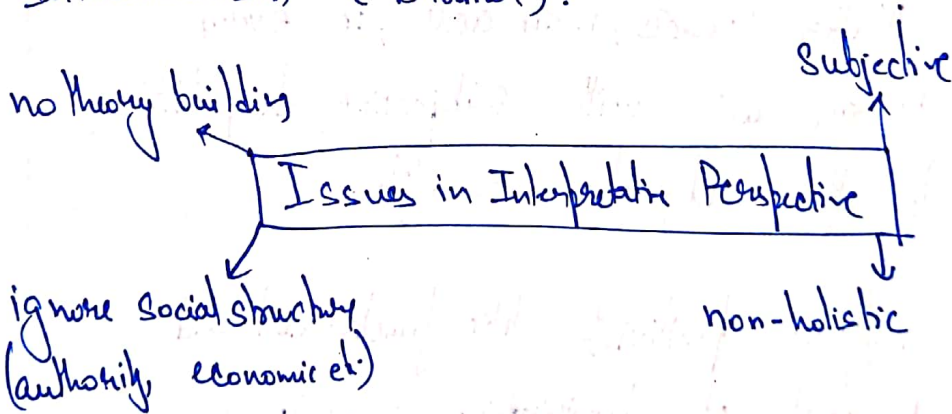 subjective
no theory building
Issues in Interpretative Perspective
ignore social structure
(authority, economic etc.)
non-holistic